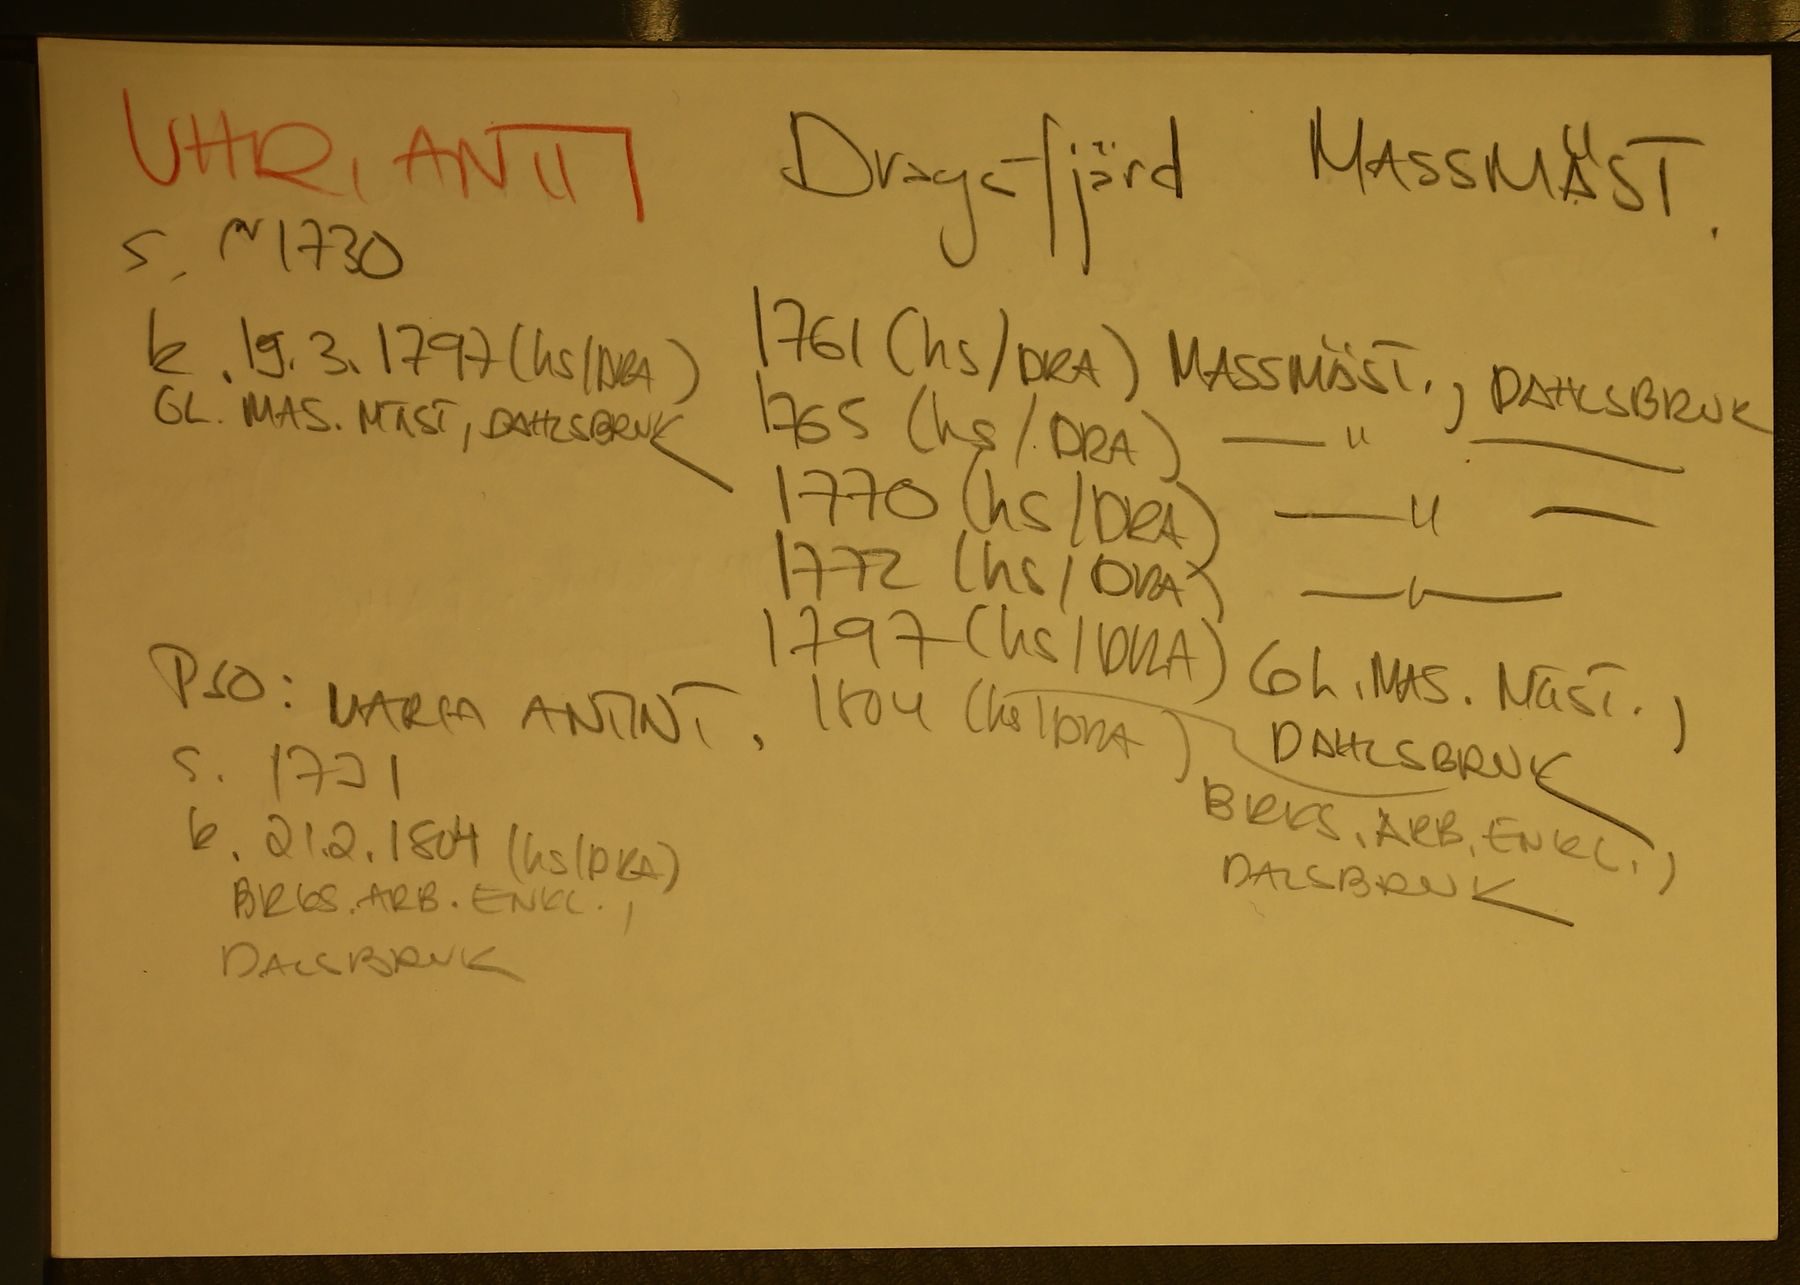 UHR, ANTTI Dragsfjärd MASSMÄST.
s. ~1730
k. 19.3.1797 (hs/DRA)
GL. MAS. MÄST, DAHLSBRUK
1761 (hs/DRA) MASSMÄST., DAHLSBRUK
1765 (hs/DRA) — " —
1770 (hs/DRA) — " —
1772 (hs/DRA) — " —
1797 (hs/DRA) GL. MAS. MÄST.,
DAHLSBRUK
1804 (hs/DRA)
BRKS. ARB. ENKL.,
DALSBRUK
PSO: MARIA ANTINT.
s. 1731
k. 21.2.1804 (hs/DRA)
BRKS. ARB. ENKL.,
DALSBRUK